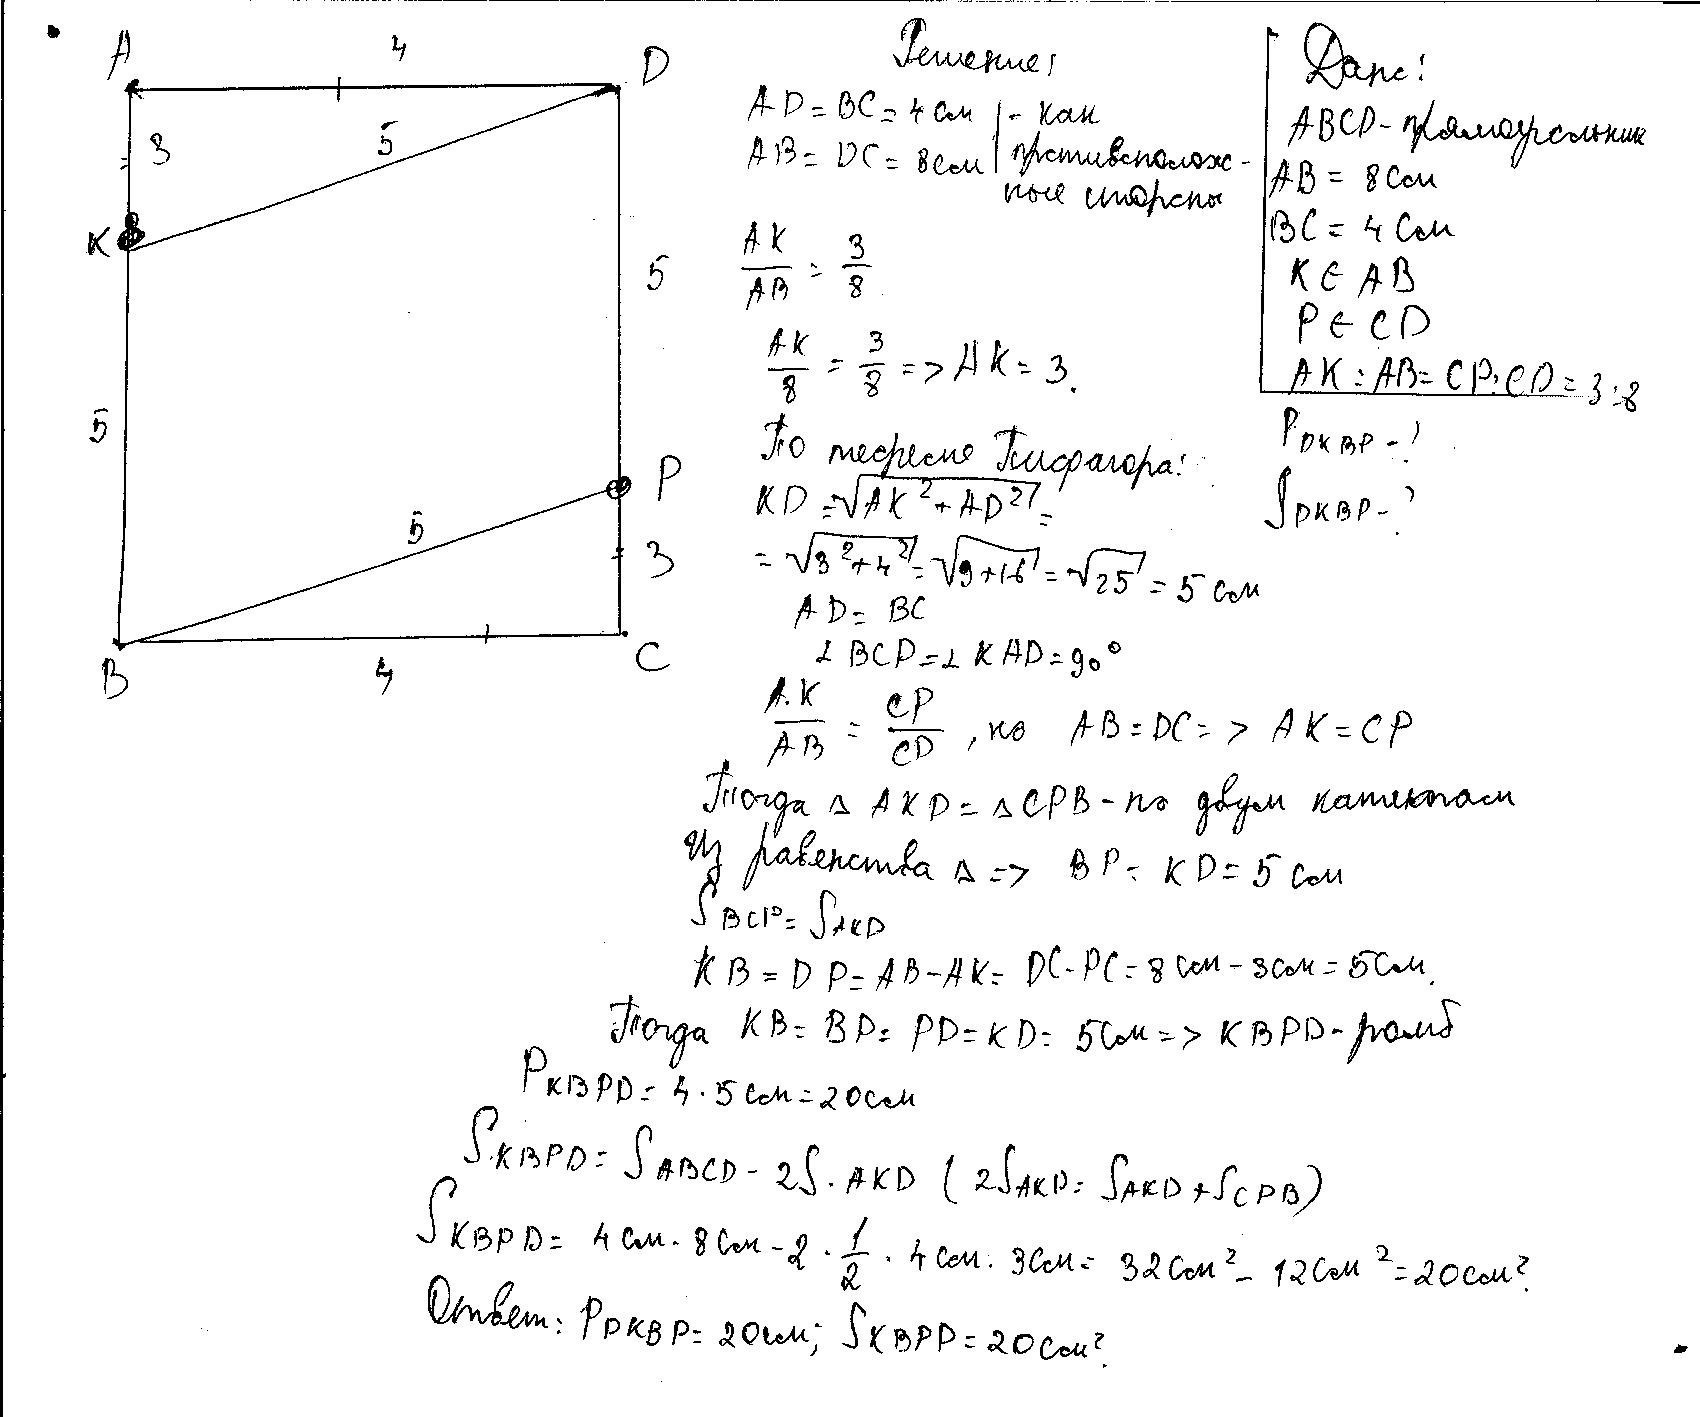 A 4 D
3 5
K
5
5
5 P
3
B 4 C
Решение:
AD = BC = 4 см | - как
AB = DC = 8 см | противополож-
ные стороны
AK/AB = 3/8
AK/8 = 3/8 => AK = 3.
По теореме Пифагора:
KD = √(AK² + AD²) =
= √(3² + 4²) = √(9+16) = √25 = 5 см
AD = BC
∠BCD = ∠KAD = 90°
AK/AB = CP/CD, но AB = DC => AK = CP
Тогда △ AKD = △CPB - по двум катетам
Из равенства △ => BP = KD = 5 см
S BCP = S AKD
KB = DP = AB - AK = DC - PC = 8 см - 3 см = 5 см.
Тогда KB = BP = PD = KD = 5 см => KBPD - ромб
P KBPD = 4 · 5 см = 20 см
S KBPD = S ABCD - 2S · AKD (2S AKD = S AKD + S CPB)
S KBPD = 4 см · 8 см - 2 · 1/2 · 4 см · 3 см = 32 см² - 12 см² = 20 см²
Ответ: P DKBP = 20 см; S KBPD = 20 см².
Дано:
ABCD - прямоугольник
AB = 8 см
BC = 4 см
K ∈ AB
P ∈ CD
AK : AB = CP : CD = 3 : 8
P DKBP - ?
S DKBP - ?